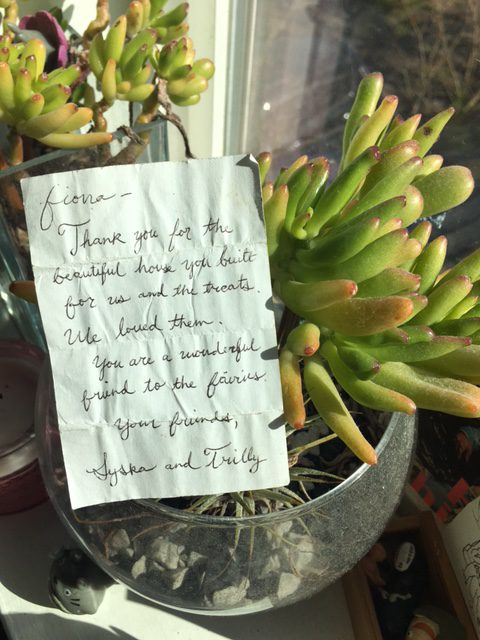 fiona -
Thank you for the
beautiful house you built
for us and the treats.
We loved them.
You are a wonderful
friend to the fairies.
Your friends,
Lyska and Trilly